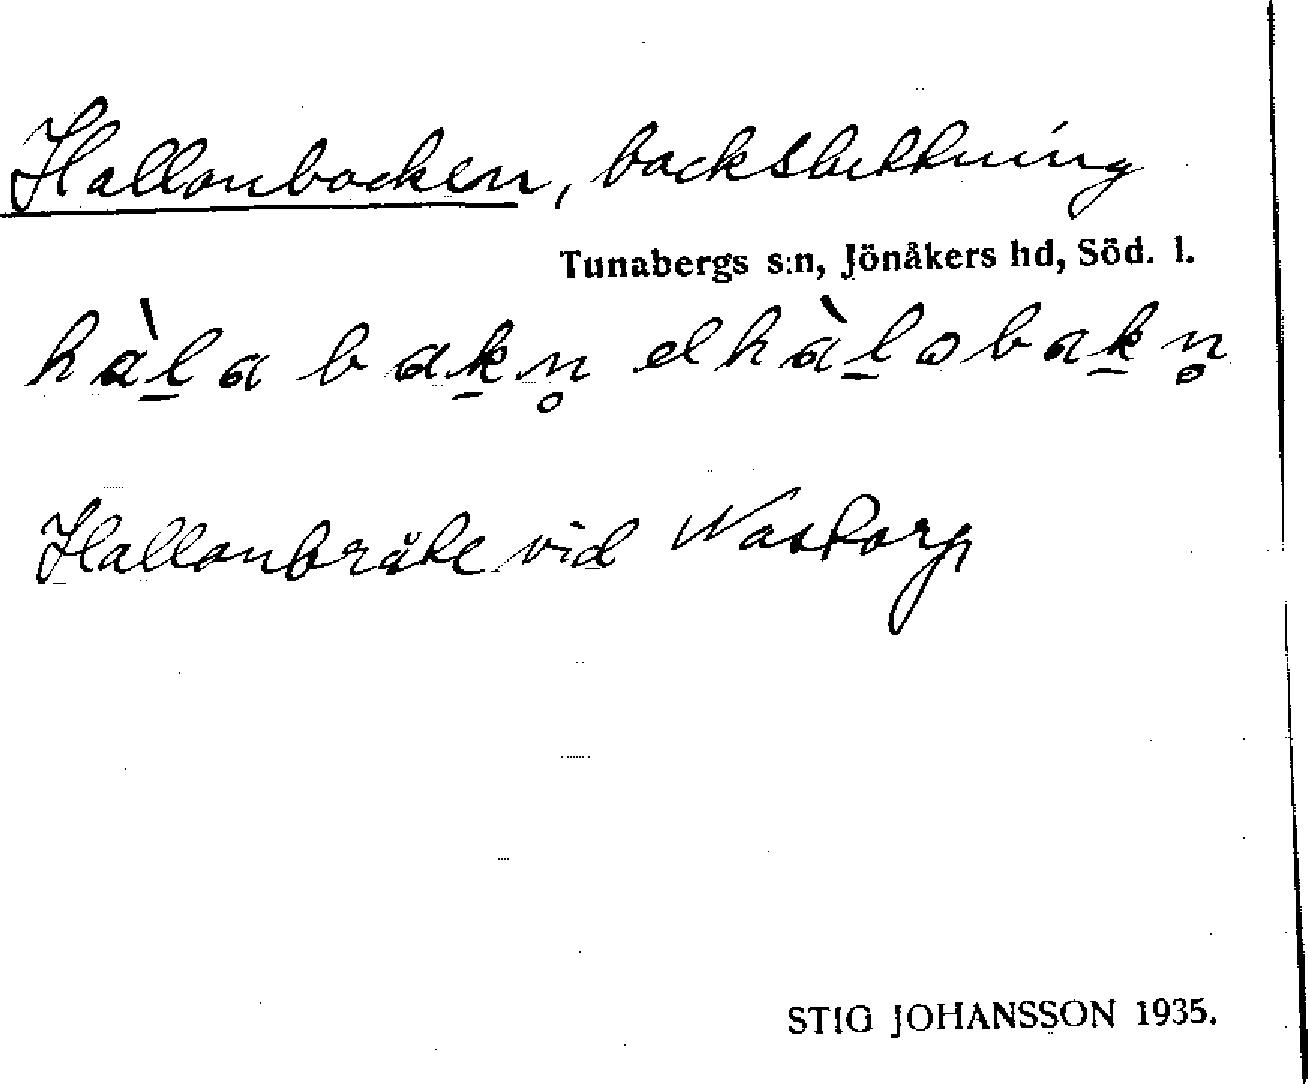 Hallonbacken, backsluttning
Tunabergs s:n, Jönåkers hd, Söd. l.
hàl̠a bak̠n̥ el hàl̠obak̠n̥
Hallonbråte vid Nastorp
STIG JOHANSSON 1935.